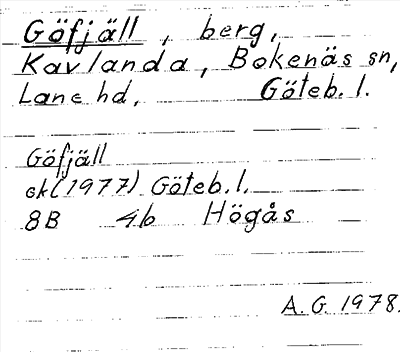 Göfjäll, berg,
Kavlanda, Bokenäs sn,
Lane hd, Göteb. l.
Göfjäll
ek (1977) Göteb. l.
8B 4b Högås
A. G. 1978.